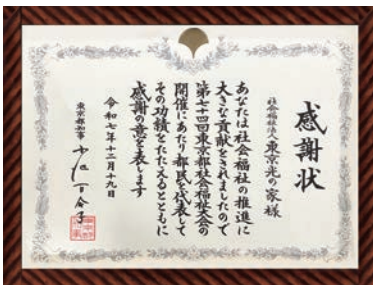 感謝状
社会福祉法人東京光の家様
あなたは社会福祉の推進に
大きな貢献をされましたので
第七十四回東京都社会福祉大会の
開催にあたり都民を代表して
その功績をたたえるとともに
感謝の意を表します
令和七年十二月十九日
東京都知事 小池百合子